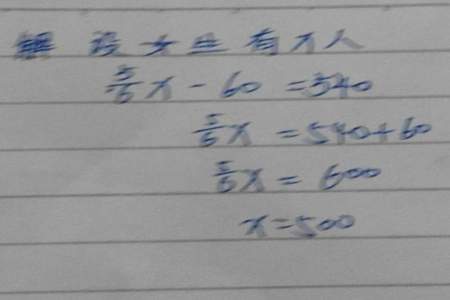 解 设女生有x人
5/6x - 60 = 540
5/6x = 540+60
5/6x = 600
x = 500